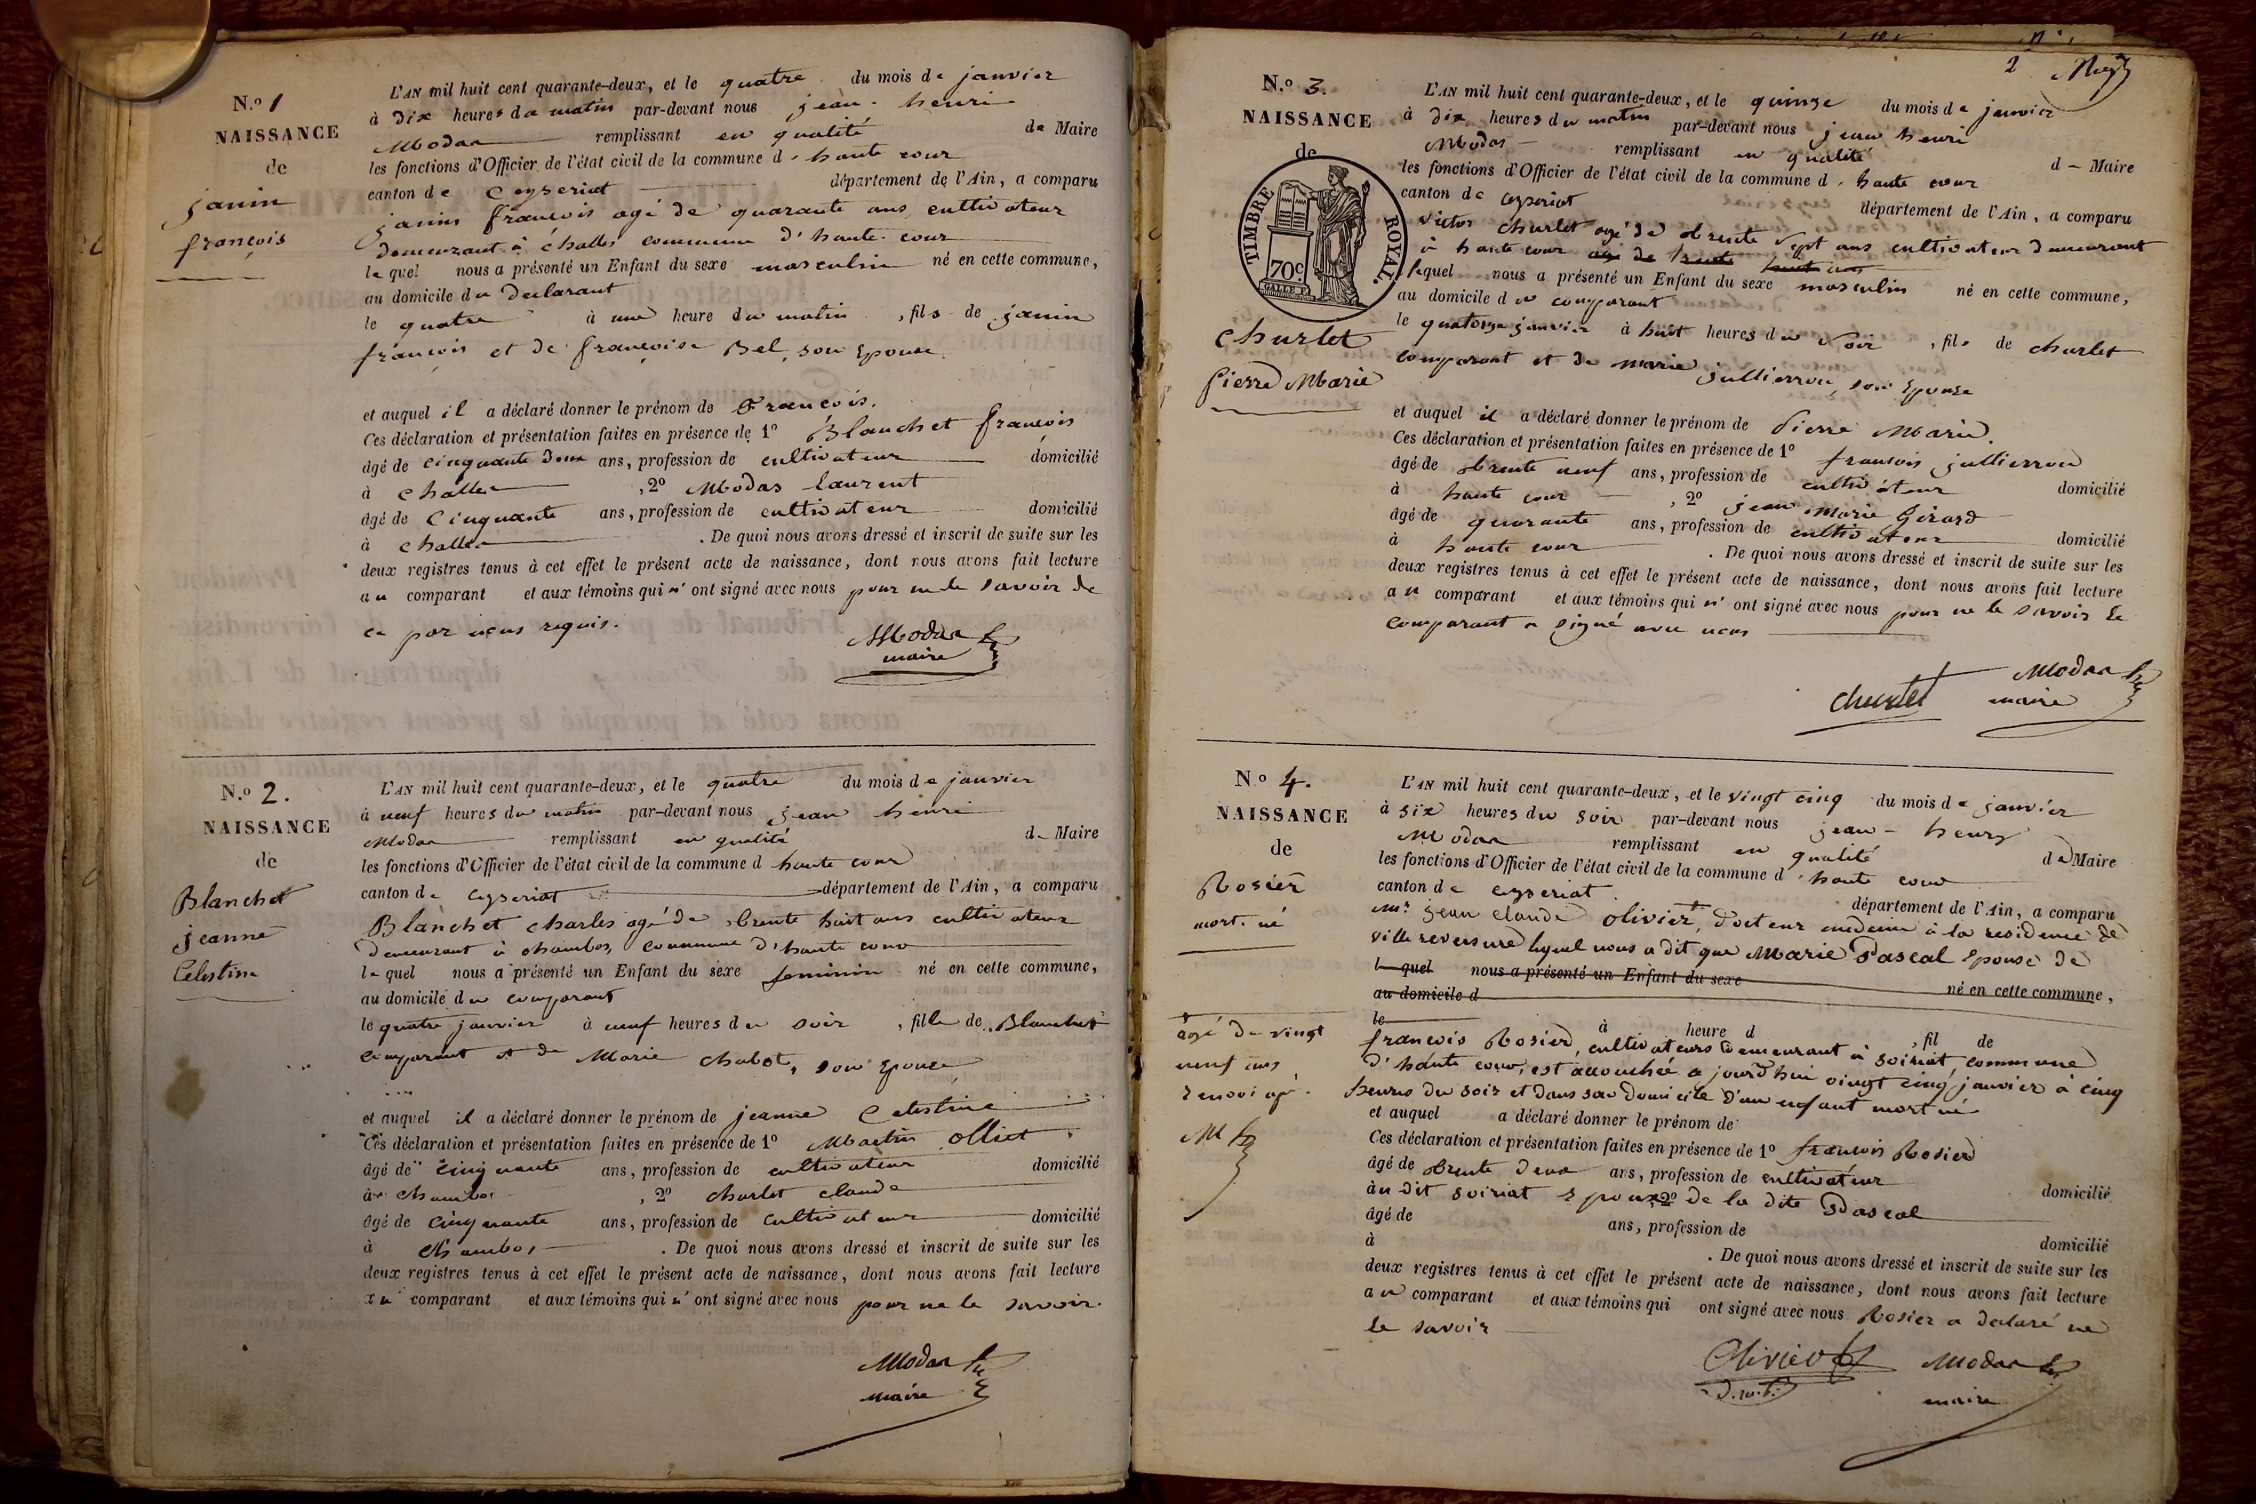 N.o 1
NAISSANCE
de
janin
françois
L'AN mil huit cent quarante-deux, et le quatre du mois de janvier
à dix heures du matin par-devant nous jean henri
Modas remplissant en qualité de Maire
les fonctions d'Officier de l'état civil de la commune d' haute cour
canton de Ceyseriat département de l'Ain, a comparu
janin françois agé de quarante ans, cultivateur
demeurant à challes commune d'haute cour
le quel nous a présenté un Enfant du sexe masculin né en cette commune,
au domicile du declarant
le quatre à une heure du matin, fils de janin
françois et de françoise Bel, son Epouse
et auquel il a déclaré donner le prénom de François.
Ces déclaration et présentation faites en présence de 1o Blanchet françois
âgé de cinquante deux ans, profession de cultivateur domicilié
à challes, 2o Modas laurent
âgé de Cinquante ans, profession de cultivateur domicilié
à challes. De quoi nous avons dressé et inscrit de suite sur les
deux registres tenus à cet effet le présent acte de naissance, dont nous avons fait lecture
au comparant et aux témoins qui n'ont signé avec nous pour ne le savoir de
ce par nous requis.
Modas
maire
N.o 2.
NAISSANCE
de
Blanchet
jeanne
Celestine
L'AN mil huit cent quarante-deux, et le quatre du mois de janvier
à neuf heures du matin par-devant nous jean henri
Modas remplissant en qualité de Maire
les fonctions d'Officier de l'état civil de la commune d haute cour
canton de Ceyseriat département de l'Ain, a comparu
Blanchet charles agé de trente huit ans cultivateur
demeurant à chambos, commune d'haute cour
le quel nous a présenté un Enfant du sexe feminin né en cette commune,
au domicile du comparant
le quatre janvier à neuf heures du soir, fille de Blanchet
comparant et de Marie chabot, son Epouse
et auquel il a déclaré donner le prénom de jeanne Celestine
Ces déclaration et présentation faites en présence de 1o Martin olliet
âgé de cinquante ans, profession de cultivateur domicilié
à chambos, 2o charlet claude
âgé de cinquante ans, profession de cultivateur domicilié
à chambos. De quoi nous avons dressé et inscrit de suite sur les
deux registres tenus à cet effet le présent acte de naissance, dont nous avons fait lecture
au comparant et aux témoins qui n'ont signé avec nous pour ne le savoir.
Modas
maire
2
N.o 3.
NAISSANCE
de
TIMBRE ROYAL.
70c.
Churlet
Pierre Marie
L'AN mil huit cent quarante-deux, et le quinze du mois de janvier
à dix heures du matin par-devant nous jean henri
Modas remplissant en qualité d Maire
les fonctions d'Officier de l'état civil de la commune d' haute cour
canton de Ceyseriat département de l'Ain, a comparu
victor Churlet agé de trente sept ans cultivateur demeurant
à haute cour agé de trente huit ans
lequel nous a présenté un Enfant du sexe masculin né en cette commune,
au domicile du comparant
le quatorze janvier à huit heures du soir, fils de churlet
comparant et de marie jullierron, son Epouse
et auquel il a déclaré donner le prénom de Pierre Marie.
Ces déclaration et présentation faites en présence de 1o francois jullierron
âgé de trente neuf ans, profession de cultivateur domicilié
à haute cour, 2o jean marie Girard
âgé de quarante ans, profession de cultivateur domicilié
à haute cour. De quoi nous avons dressé et inscrit de suite sur les
deux registres tenus à cet effet le présent acte de naissance, dont nous avons fait lecture
au comparant et aux témoins qui n'ont signé avec nous pour ne le savoir le
comparant a signé avec nous
churlet
Modas
maire
N.o 4.
NAISSANCE
de
Rosier
mort. né
L'AN mil huit cent quarante-deux, et le vingt cinq du mois de janvier
à six heures du soir par-devant nous jean-henry
Modas remplissant en qualité de Maire
les fonctions d'Officier de l'état civil de la commune d' haute cour
canton de Ceyseriat. département de l'Ain, a comparu
Mr. jean claude olivier, docteur medecin à la residence de
ville reversure lequel nous a dit que Marie Pascal Epouse de
le quel nous a présenté un Enfant du sexe né en cette commune,
au domicile d
le à heure d, fil de
françois Rosier, cultivateurs demeurant à soiriat, commune
d'haute cour, est accouchée aujourd'hui vingt cinq janvier à cinq
heures du soir et dans son domicile d'un enfant mort né
agé de vingt
neuf ans
renvoi ap.
et auquel a déclaré donner le prénom de
Ces déclaration et présentation faites en présence de 1o francois Rosier
âgé de trente deux ans, profession de cultivateur domicilié
à au dit soiriat Epoux 2o de la dite Pascal
âgé de ans, profession de domicilié
à. De quoi nous avons dressé et inscrit de suite sur les
deux registres tenus à cet effet le présent acte de naissance, dont nous avons fait lecture
au comparant et aux témoins qui ont signé avec nous Rosier a declaré ne
le savoir
Olivier
d.m.
Modas
maire